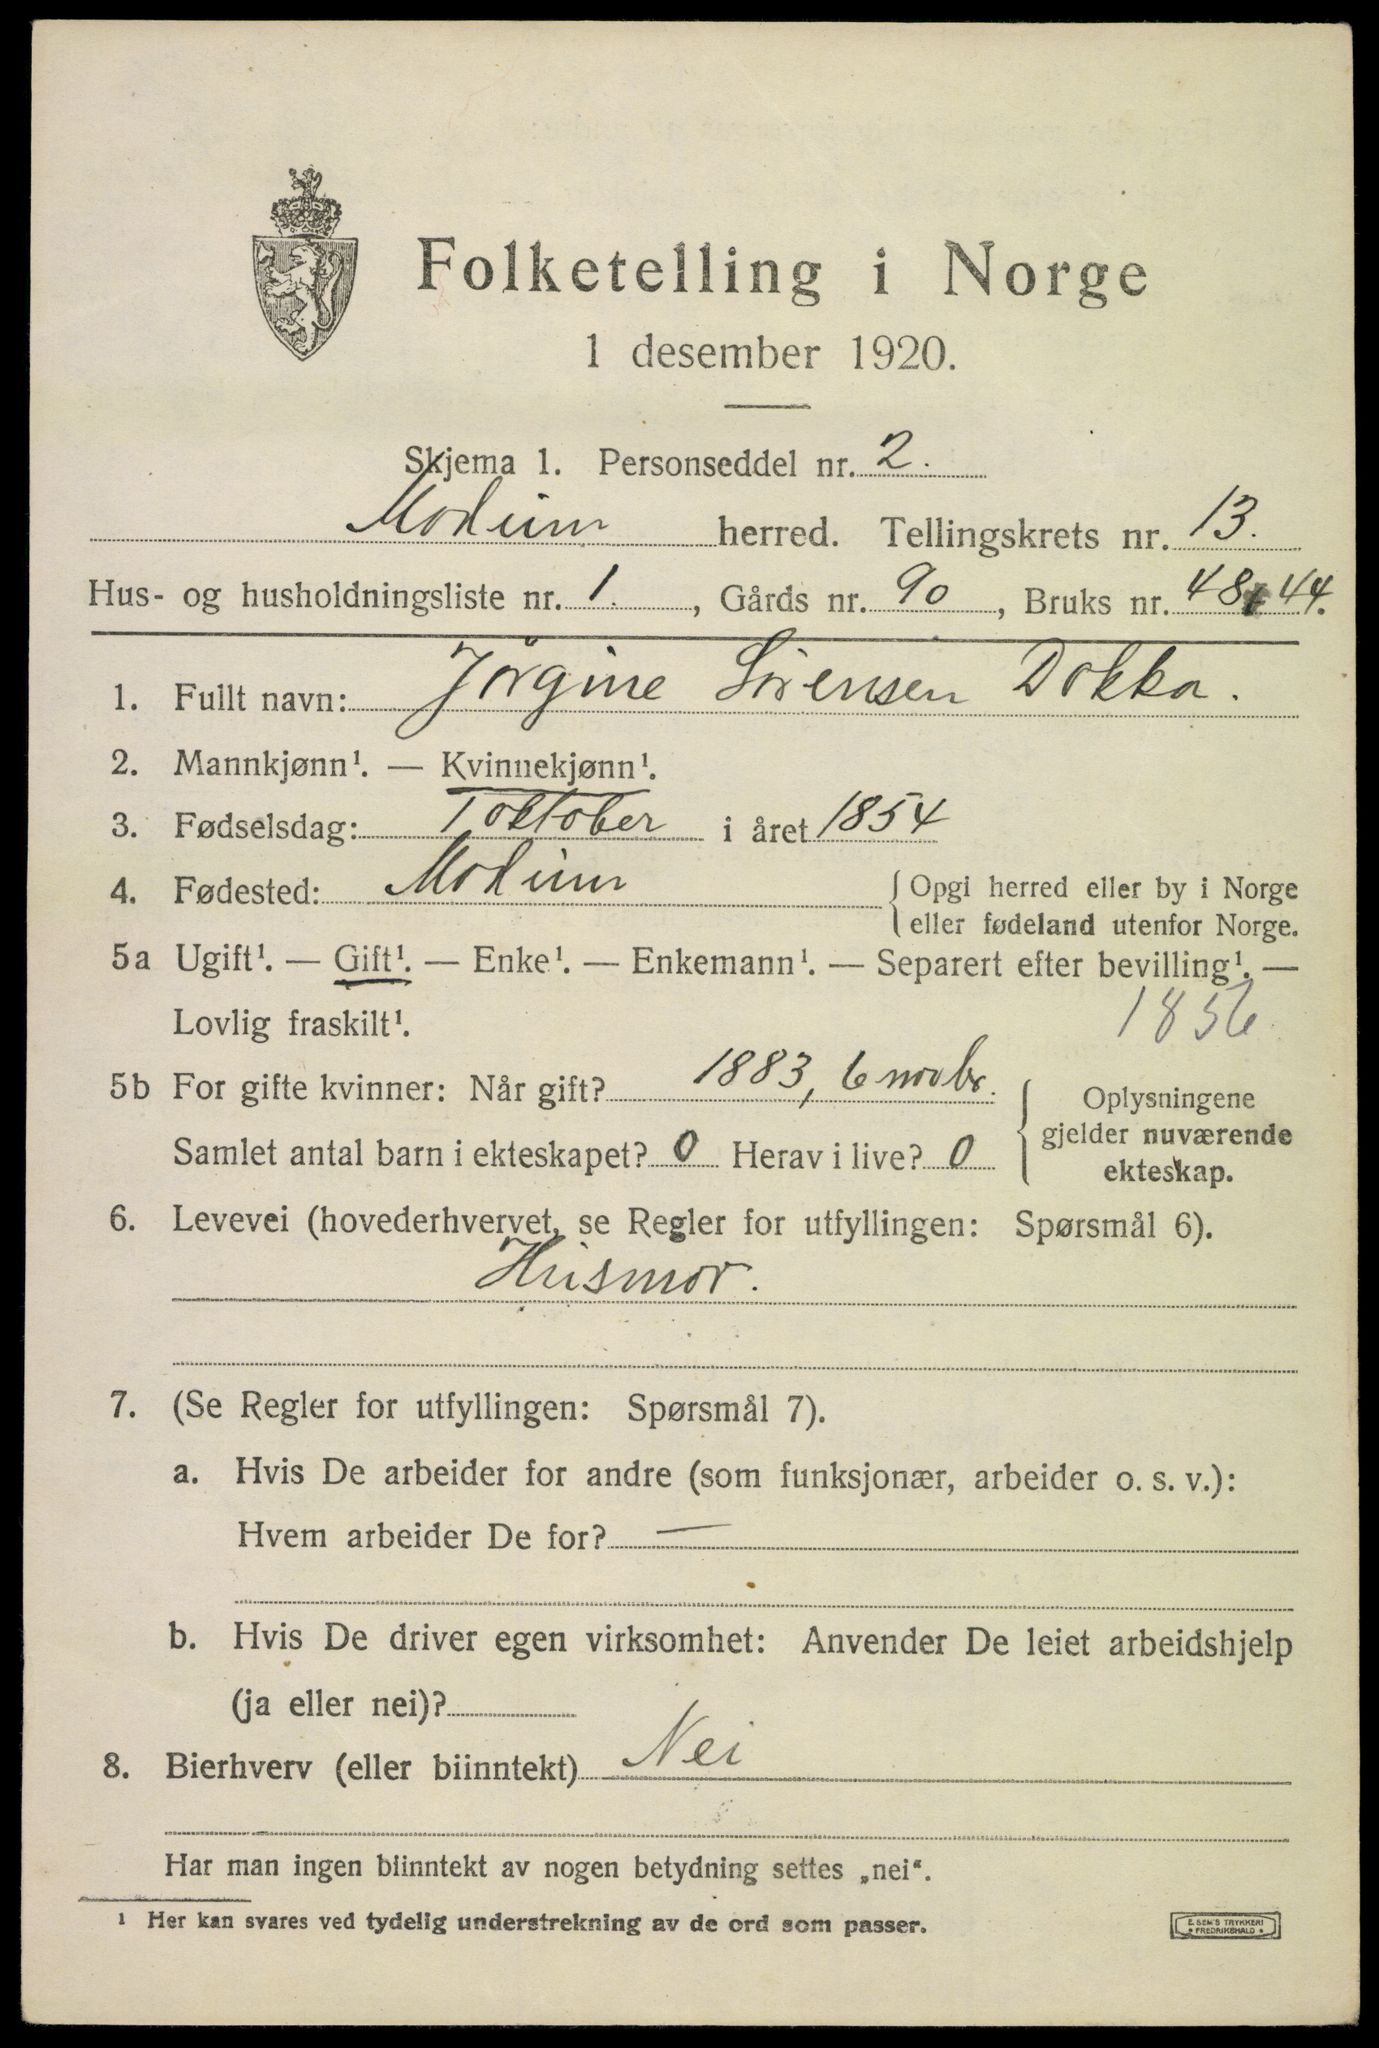 Folketelling i Norge
1 desember 1920.
Skjema 1. Personseddel nr. 2.
Modum herred. Tellingskrets nr. 13.
Hus- og husholdningsliste nr. 1., Gårds nr. 90, Bruks nr. 48, 44.
1. Fullt navn: Jørgine Sørensen Dokka.
2. Mannkjønn¹. — Kvinnekjønn¹.
3. Fødselsdag: 1 oktober i året 1854
4. Fødested: Modum { Opgi herred eller by i Norge
eller fødeland utenfor Norge.
5a Ugift¹. — Gift¹. — Enke¹. — Enkemann¹. — Separert efter bevilling¹. —
Lovlig fraskilt¹. 1856
5b For gifte kvinner: Når gift? 1883, 6 novbr. { Oplysningene
gjelder nuværende
Samlet antal barn i ekteskapet? 0 Herav i live? 0 ekteskap.
6. Levevei (hovederhvervet, se Regler for utfyllingen: Spørsmål 6).
Husmor.
7. (Se Regler for utfyllingen: Spørsmål 7).
a. Hvis De arbeider for andre (som funksjonær, arbeider o. s. v.):
Hvem arbeider De for? —
b. Hvis De driver egen virksomhet: Anvender De leiet arbeidshjelp
(ja eller nei)?
8. Bierhverv (eller biinntekt) Nei
Har man ingen biinntekt av nogen betydning settes „nei“.
¹ Her kan svares ved tydelig understrekning av de ord som passer.
E. SEM'S TRYKKERI
* FREDRIKSHALD *